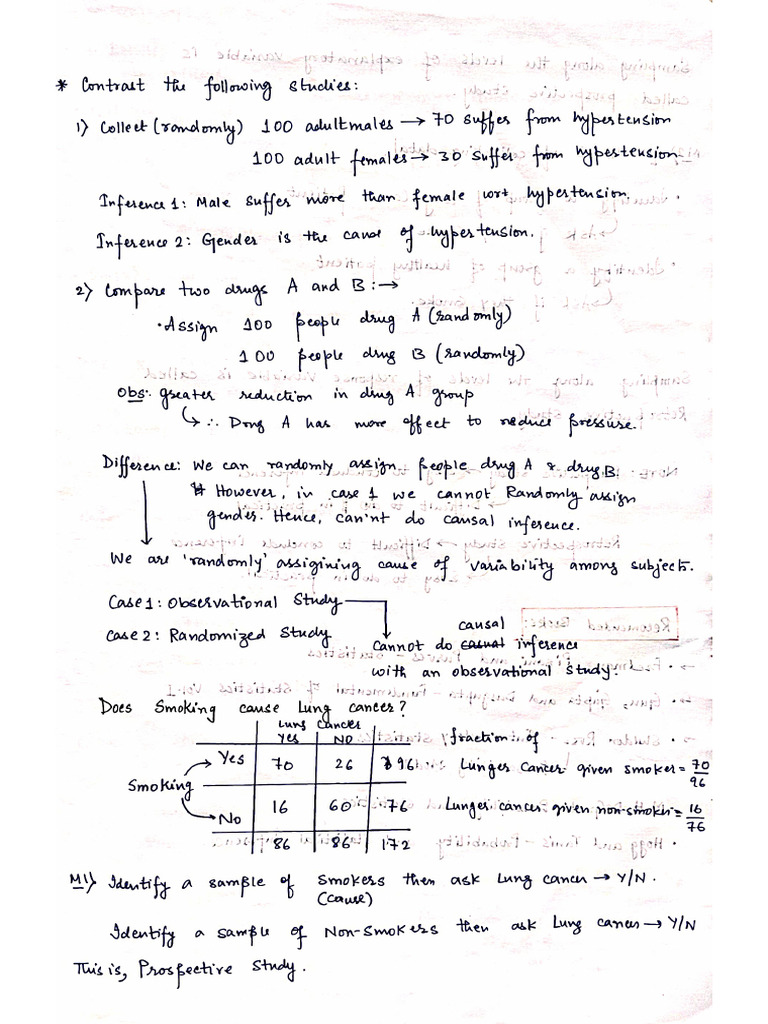 * Contrast the following studies:
1) Collect (randomly) 100 adult males → 70 suffer from hypertension
100 adult females → 30 suffer from hypertension
Inference 1: Male suffer more than female wrt hypertension
Inference 2: Gender is the cause of hypertension.
2) Compare two drugs A and B: →
• Assign 100 people drug A (randomly)
100 people drug B (randomly)
Obs: greater reduction in drug A group
↳ ∴ Drug A has more effect to reduce pressure.
Difference: We can randomly assign people drug A & drug B
However, in case 1 we cannot Randomly assign
gender. Hence, can'nt do causal inference.
We are 'randomly' assigining cause of variability among subject.
Case 1: Observational Study
Case 2: Randomized Study
causal
cannot do casual inference
with an observational study.
Does Smoking cause Lung cancer?
Lung Cancer
Yes NO
Smoking
Yes 70 26 96
No 16 60 76
86 86 172
fraction of
Lunger Cancer given smoker = 70/96
Lunger cancer given non-smoker = 16/76
M1) Identify a sample of Smokers then ask Lung cancer → Y/N.
(cause)
Identify a sample of Non-Smokers then ask Lung cancer → Y/N
This is, Prospective Study.